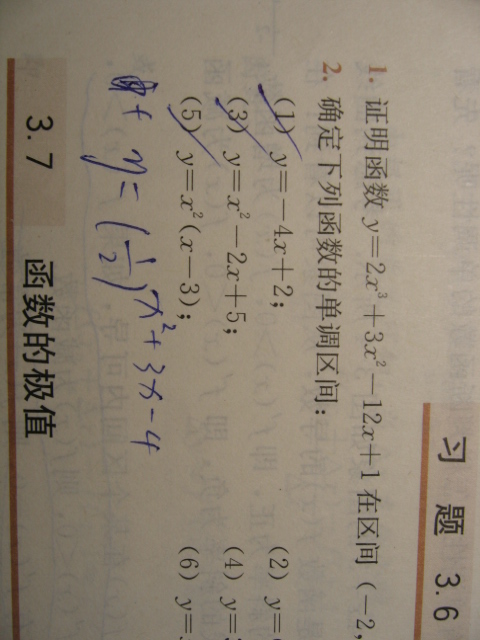 习 题 3.6
1. 证明函数 y=2x³+3x²-12x+1 在区间 (-2,
2. 确定下列函数的单调区间:
(1) y=-4x+2; (2) y=
(3) y=x²-2x+5; (4) y=
(5) y=x²(x-3); (6) y=
+ y=(1/2)x²+3x-4
3.7 函数的极值